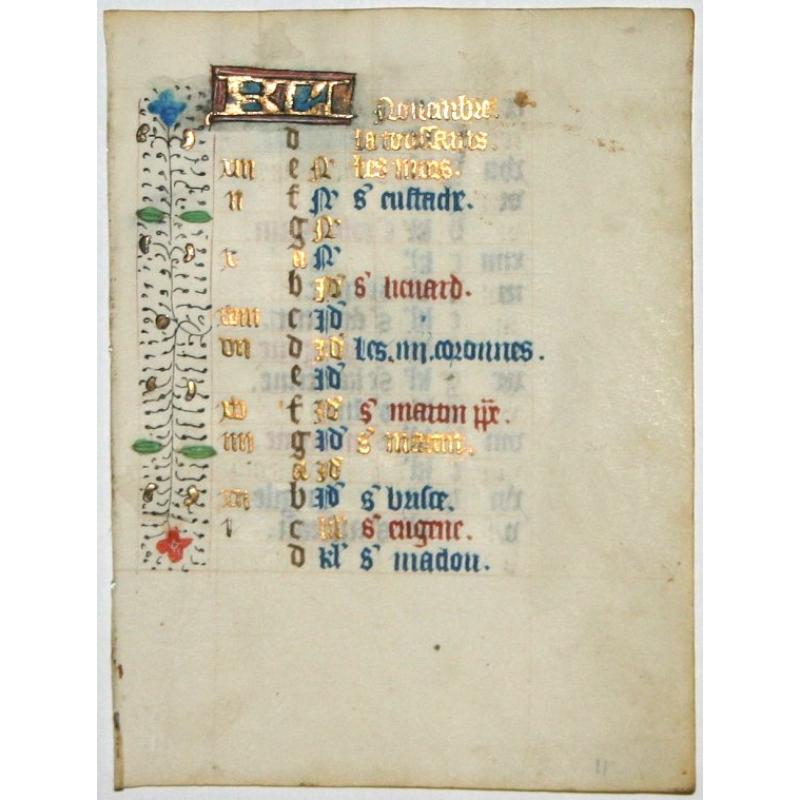 KL Nouembre.
d la toussains.
xiii e N les mors.
ii f N s eustace.
g N
x a N
b Id s lienard.
xviii c Id
vii d Id les.iiij.coronnes.
e Id
xv f Id s martin ppe.
iiii g Id s martin.
a Id
xii b Id s brisce.
i c kl s eugene.
d kl s maclou.
11